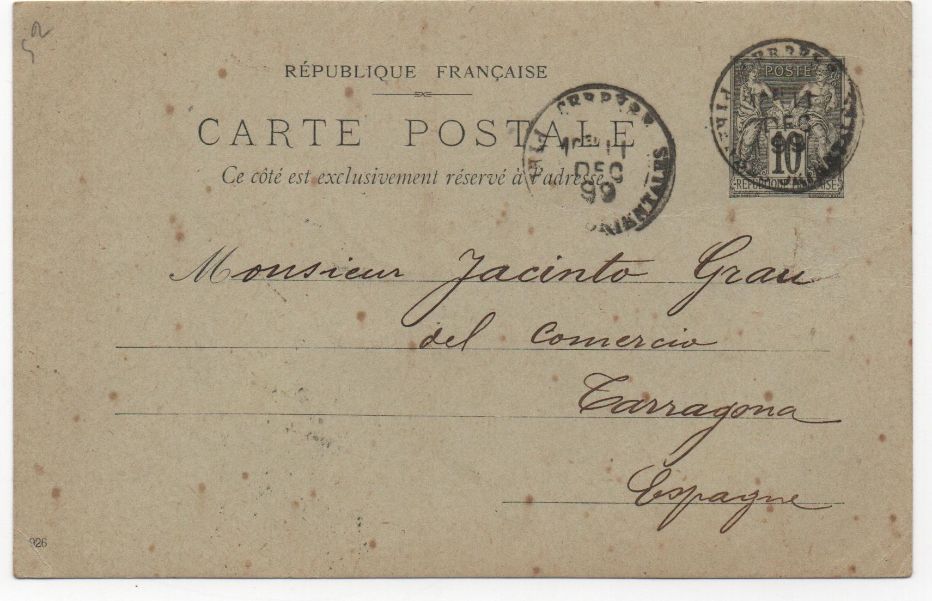 RÉPUBLIQUE FRANÇAISE
CARTE POSTALE
Ce côté est exclusivement réservé à l'adresse.
POSTE
10
11
DEC
99
11
DEC
99
Monsieur Jacinto Grau
del Comercio
Tarragona
Espagne
926